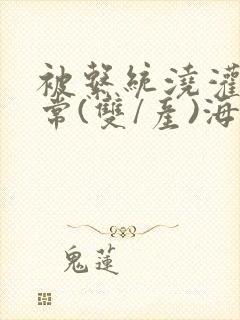 被繫統澆灌
常(雙/產)海
鬼蓮